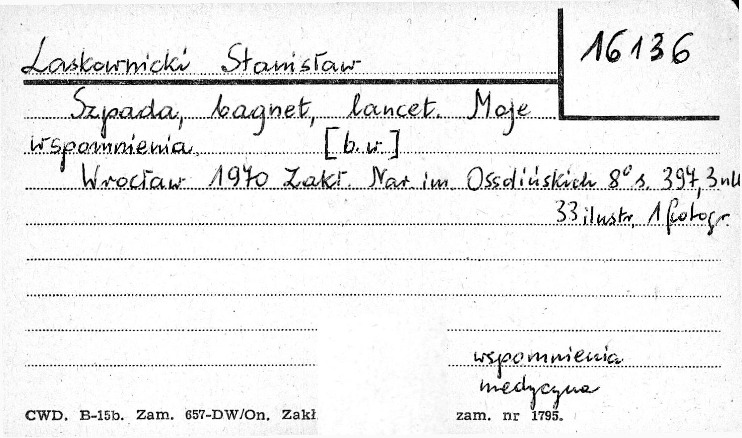 Laskownicki Stanisław
16136
Szpada, bagnet, lancet. Moje
wspomnienia [b.w.]
Wrocław 1970 Zakł. Nar im. Ossolińskich 8° s. 397, 3nlb
33 ilustr, 1 fotogr.
wspomnienia
medycyna
CWD. B-15b. Zam. 657-DW/On. Zakł
zam. nr 1795.